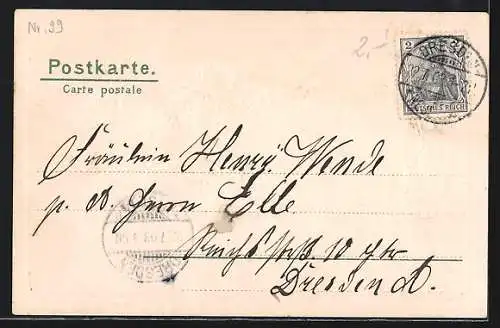 Nr. 99
2,-
Postkarte.
Carte postale
2
DRESDEN
DEUTSCHES REICH
Fräulein Henny Wende
p. A. Herrn Elle
Reichsstr. 10 ptr
Dresden A.
DRESDEN